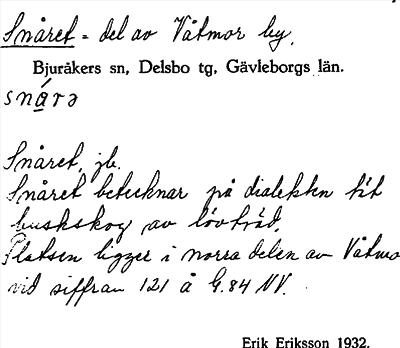 Snåret = del av Våtmor by.
Bjuråkers sn, Delsbo tg, Gävleborgs län.
snárə
Snåret, jb.
Snåret betecknar på dialekten tät
buskskog av lövträd.
Platsen ligger i norra delen av Våtmo
vid siffran 121 å G.84 NV.
Erik Eriksson 1932.